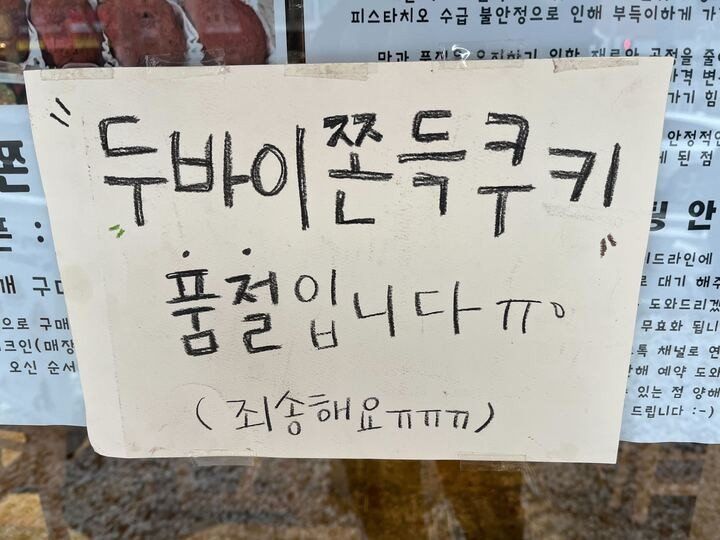 피스타치오 수급 불안정으로 인해 부득이하게 가
"두바이쫀득쿠키"
품절입니다 ㅠ。
(죄송해요ㅠㅠㅠ)
쫀
개 구매
으로 구매
오신 순서
안정적인
된 점
딩 안
이드라인에
로 대기 해주
도와드리겠
무효화 됩니
톡 채널로 연
해 예약 도와
있는 점 양해
드립니다 :-)